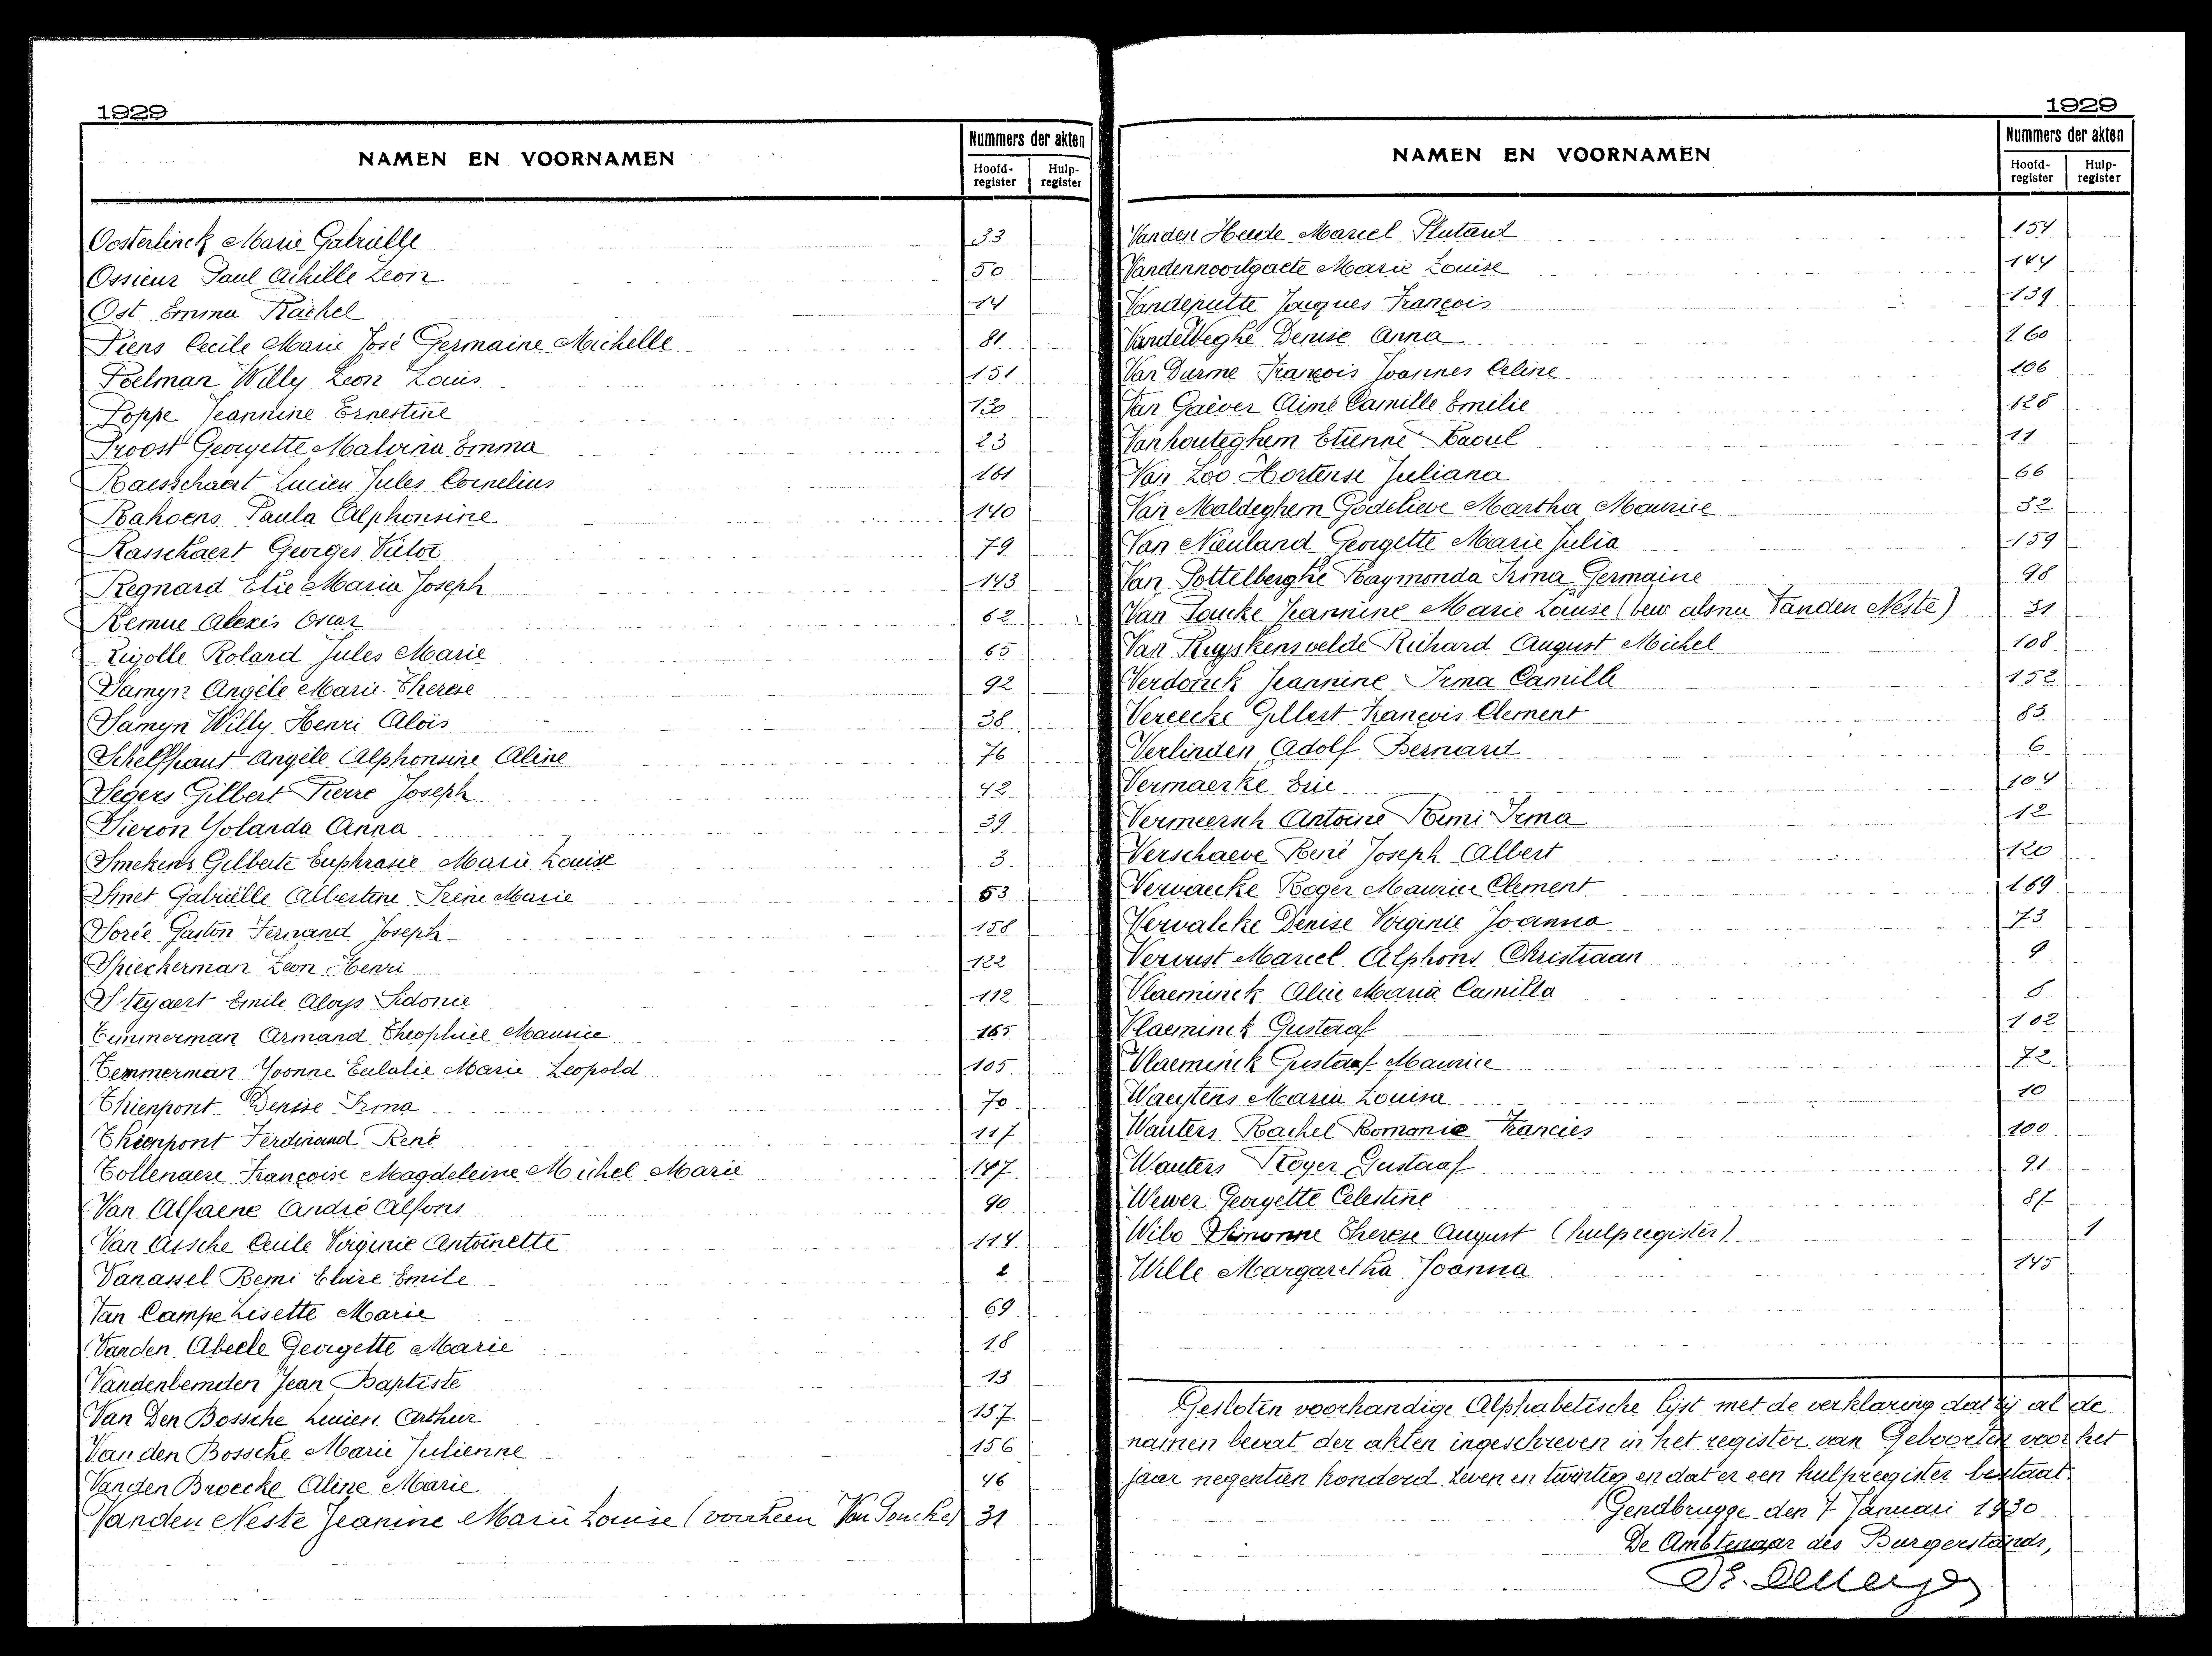 1929
NAMEN EN VOORNAMEN
Nummers der akten
Hoofd-register
Hulp-register
Oosterlinck Marie Gabriëlle 33
Ossieur Paul Achille Leon 50
Ost Emma Rachel 14
Piens Cecile Marie José Germaine Michelle 81
Poelman Willy Leon Louis 151
Poppe Jeannine Ernestine 130
Proost Georgette Malvina Emma 23
Raesschaert Lucien Jules Cornelius 161
Rahoens Paula Alphonsine 140
Rasschaert Georges Victor 79
Regnard Elie Maria Joseph 143
Remue Alexis Oscar 62
Rigolle Roland Jules Marie 65
Samyn Angèle Marie Therese 92
Samyn Willy Henri Aloïs 38
Schelfhaut Angèle Alphonsine Aline 76
Segers Gilbert Pierre Joseph 42
Sieron Yolanda Anna 39
Smekens Gilberte Euphrasie Marie Louise 3
Smet Gabriëlle Albertine Irène Marie 53
Sorée Gaston Fernand Joseph 158
Spiecherman Leon Henri 122
Steyaert Emile Aloys Sidonie 112
Temmerman Armand Theophiel Maurice 165
Temmerman Yvonne Eulalie Marie Leopold 105
Thienpont Denise Irma 70
Thienpont Ferdinand René 117
Tollenaere Françoise Magdeleine Michel Marie 147
Van Alfaene André Alfons 90
Van Assche Cecile Virginie Antoinette 114
Vanassel Remi Elvire Emile 2
Van Campe Lisette Marie 69
Vanden Abeele Georgette Marie 18
Vandenbemden Jean Baptiste 13
Van Den Bossche Lucien Arthur 137
Van den Bossche Marie Julienne 156
Vanden Broecke Aline Marie 46
Vanden Neste Jeanine Marie Louise (voorheen Van Poucke) 31
1929
NAMEN EN VOORNAMEN
Nummers der akten
Hoofd-register
Hulp-register
Vanden Heede Marcel 154
Vandennoortgaete Marie Louise 144
Vandeputte Jacques François 139
Vandelbeghe Denise Anna 160
Van Durme François Joannes Celine 106
Van Gaever Aimé Camille Emilie 128
Vanhouteghem Etienne Raoul 11
Van Loo Hortense Juliana 66
Van Maldeghem Godelieve Martha Maurice 32
Van Nieuland Georgette Marie Julia 159
Van Pottelberghe Raymonda Irma Germaine 98
Van Poucke Jeannine Marie Louise ( alsnu Vanden Neste) 31
Van Ruyskensvelde Richard August Michel 108
Verdonck Jeannine Irma Camille 152
Vereecke Gilbert François Clement 83
Verlinden Adolf Bernard 6
Vermaerke Eric 104
Vermeersch Antoine Remi Irma 12
Verschaeve René Joseph Albert 120
Vervaecke Roger Maurice Clement 169
Vervalcke Denise Virginie Joanna 73
Vervust Marcel Alphons Christiaan 9
Vlaeminck Alice Maria Camilla 8
Vlaeminck Gustaaf 102
Vlaeminck Gustaaf Maurice 72
Waeytens Maria Louisa 10
Wauters Rachel Romanie Francies 100
Wauters Roger Gustaaf 91
Wewer Georgette Celestine 87
Wibo Simonne Therese August (hulpregister) 1
Wille Margaretha Joanna 145
Gesloten voorhandige Alphabetische lijst met de verklaring dat zij al de
namen bevat der akten ingeschreven in het register van Geboorten voor het
jaar negentien honderd zeven en twintig en dat er een hulpregister bestaat
Gendbrugge den 7 Januari 1930
De Ambtenaar des Burgerstands,